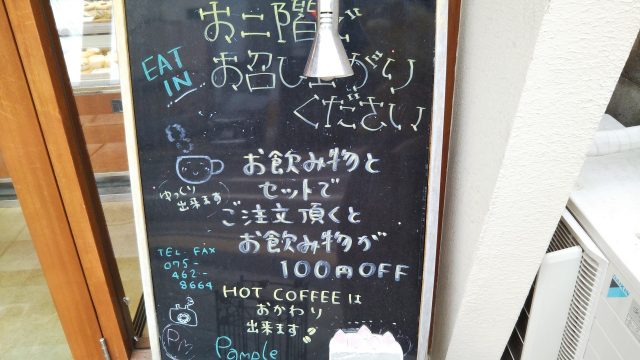 お二階で
お召し上がり
ください
EAT
IN
お飲み物と
セットで
ご注文頂くと
お飲み物が
100円OFF
(ゆっくり
出来ます)
TEL・FAX
075-
462-
8664
HOT COFFEEは
おかわり
出来ます
Pm
Pample